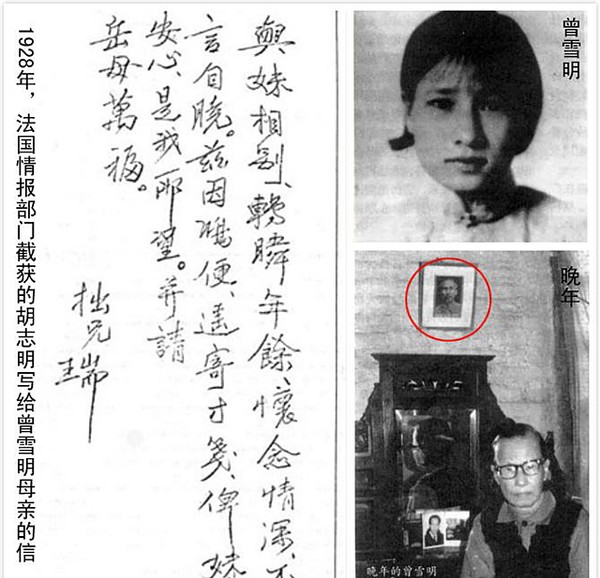 1928年，法国情报部门截获的胡志明写给曾雪明母亲的信
與妹相別、轉瞬年餘、懷念情深、不
言自曉。茲因鴻便、遥寄寸箋、俾妹
安心、是我所望。并請
岳母萬福。
拙兄
瑞
曾雪明
晚年
晚年的曾雪明